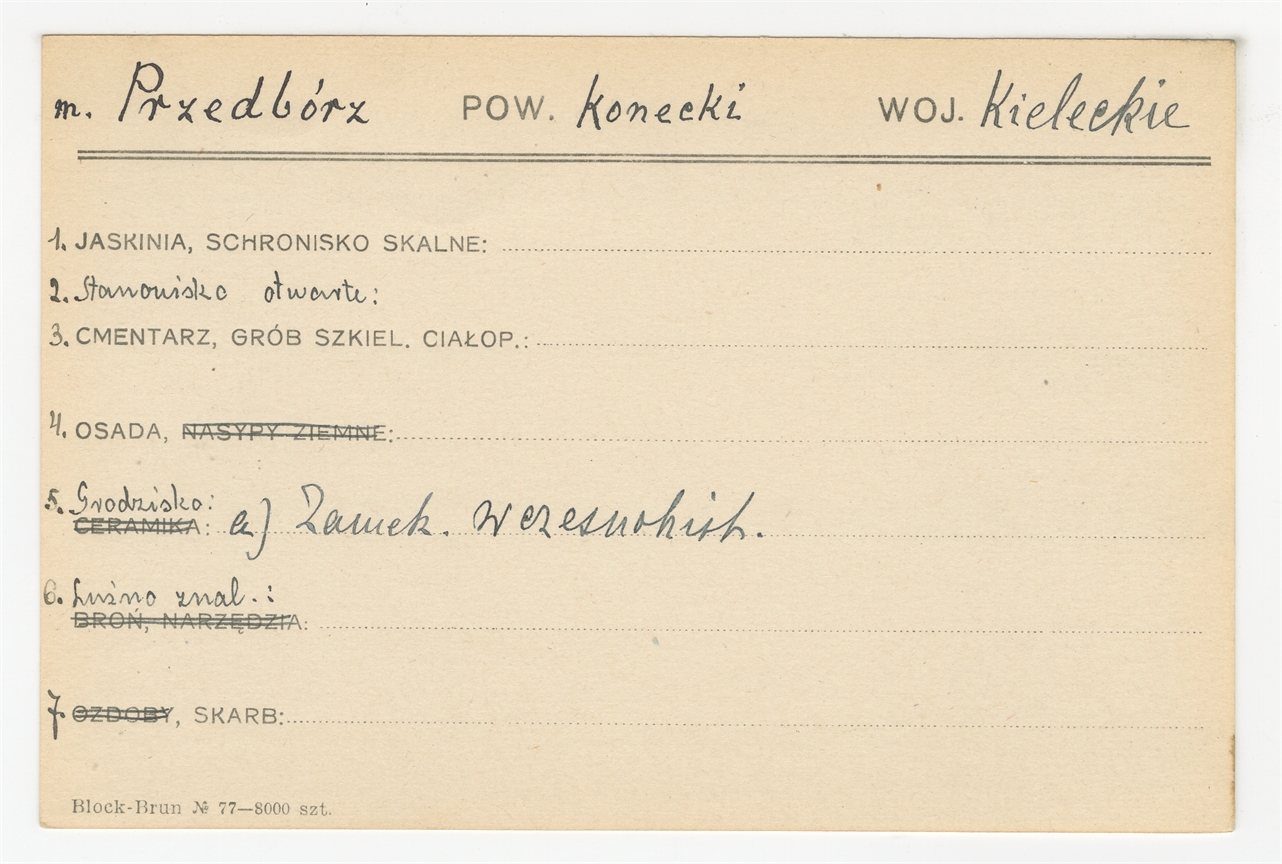 m. Przedbórz POW. Konecki WOJ. Kieleckie
1. JASKINIA, SCHRONISKO SKALNE:
2. Stanowisko otwarte:
3. CMENTARZ, GRÓB SZKIEL. CIAŁOP.:
4. OSADA, NASYPY ZIEMNE:
5. Grodzisko:
CERAMIKA: a) Zamek. wczesnohist.
6. Luźno znal.:
BROŃ, NARZĘDZIA:
7. OZDOBY, SKARB:
Block-Brun № 77—8000 szt.